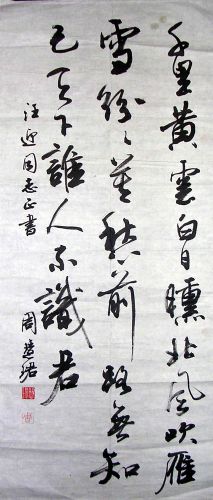 千里黄雲白日曛北风吹雁
雪紛〻莫愁前路無知
己天下誰人不識君
汪迎同志正書
周慧珺